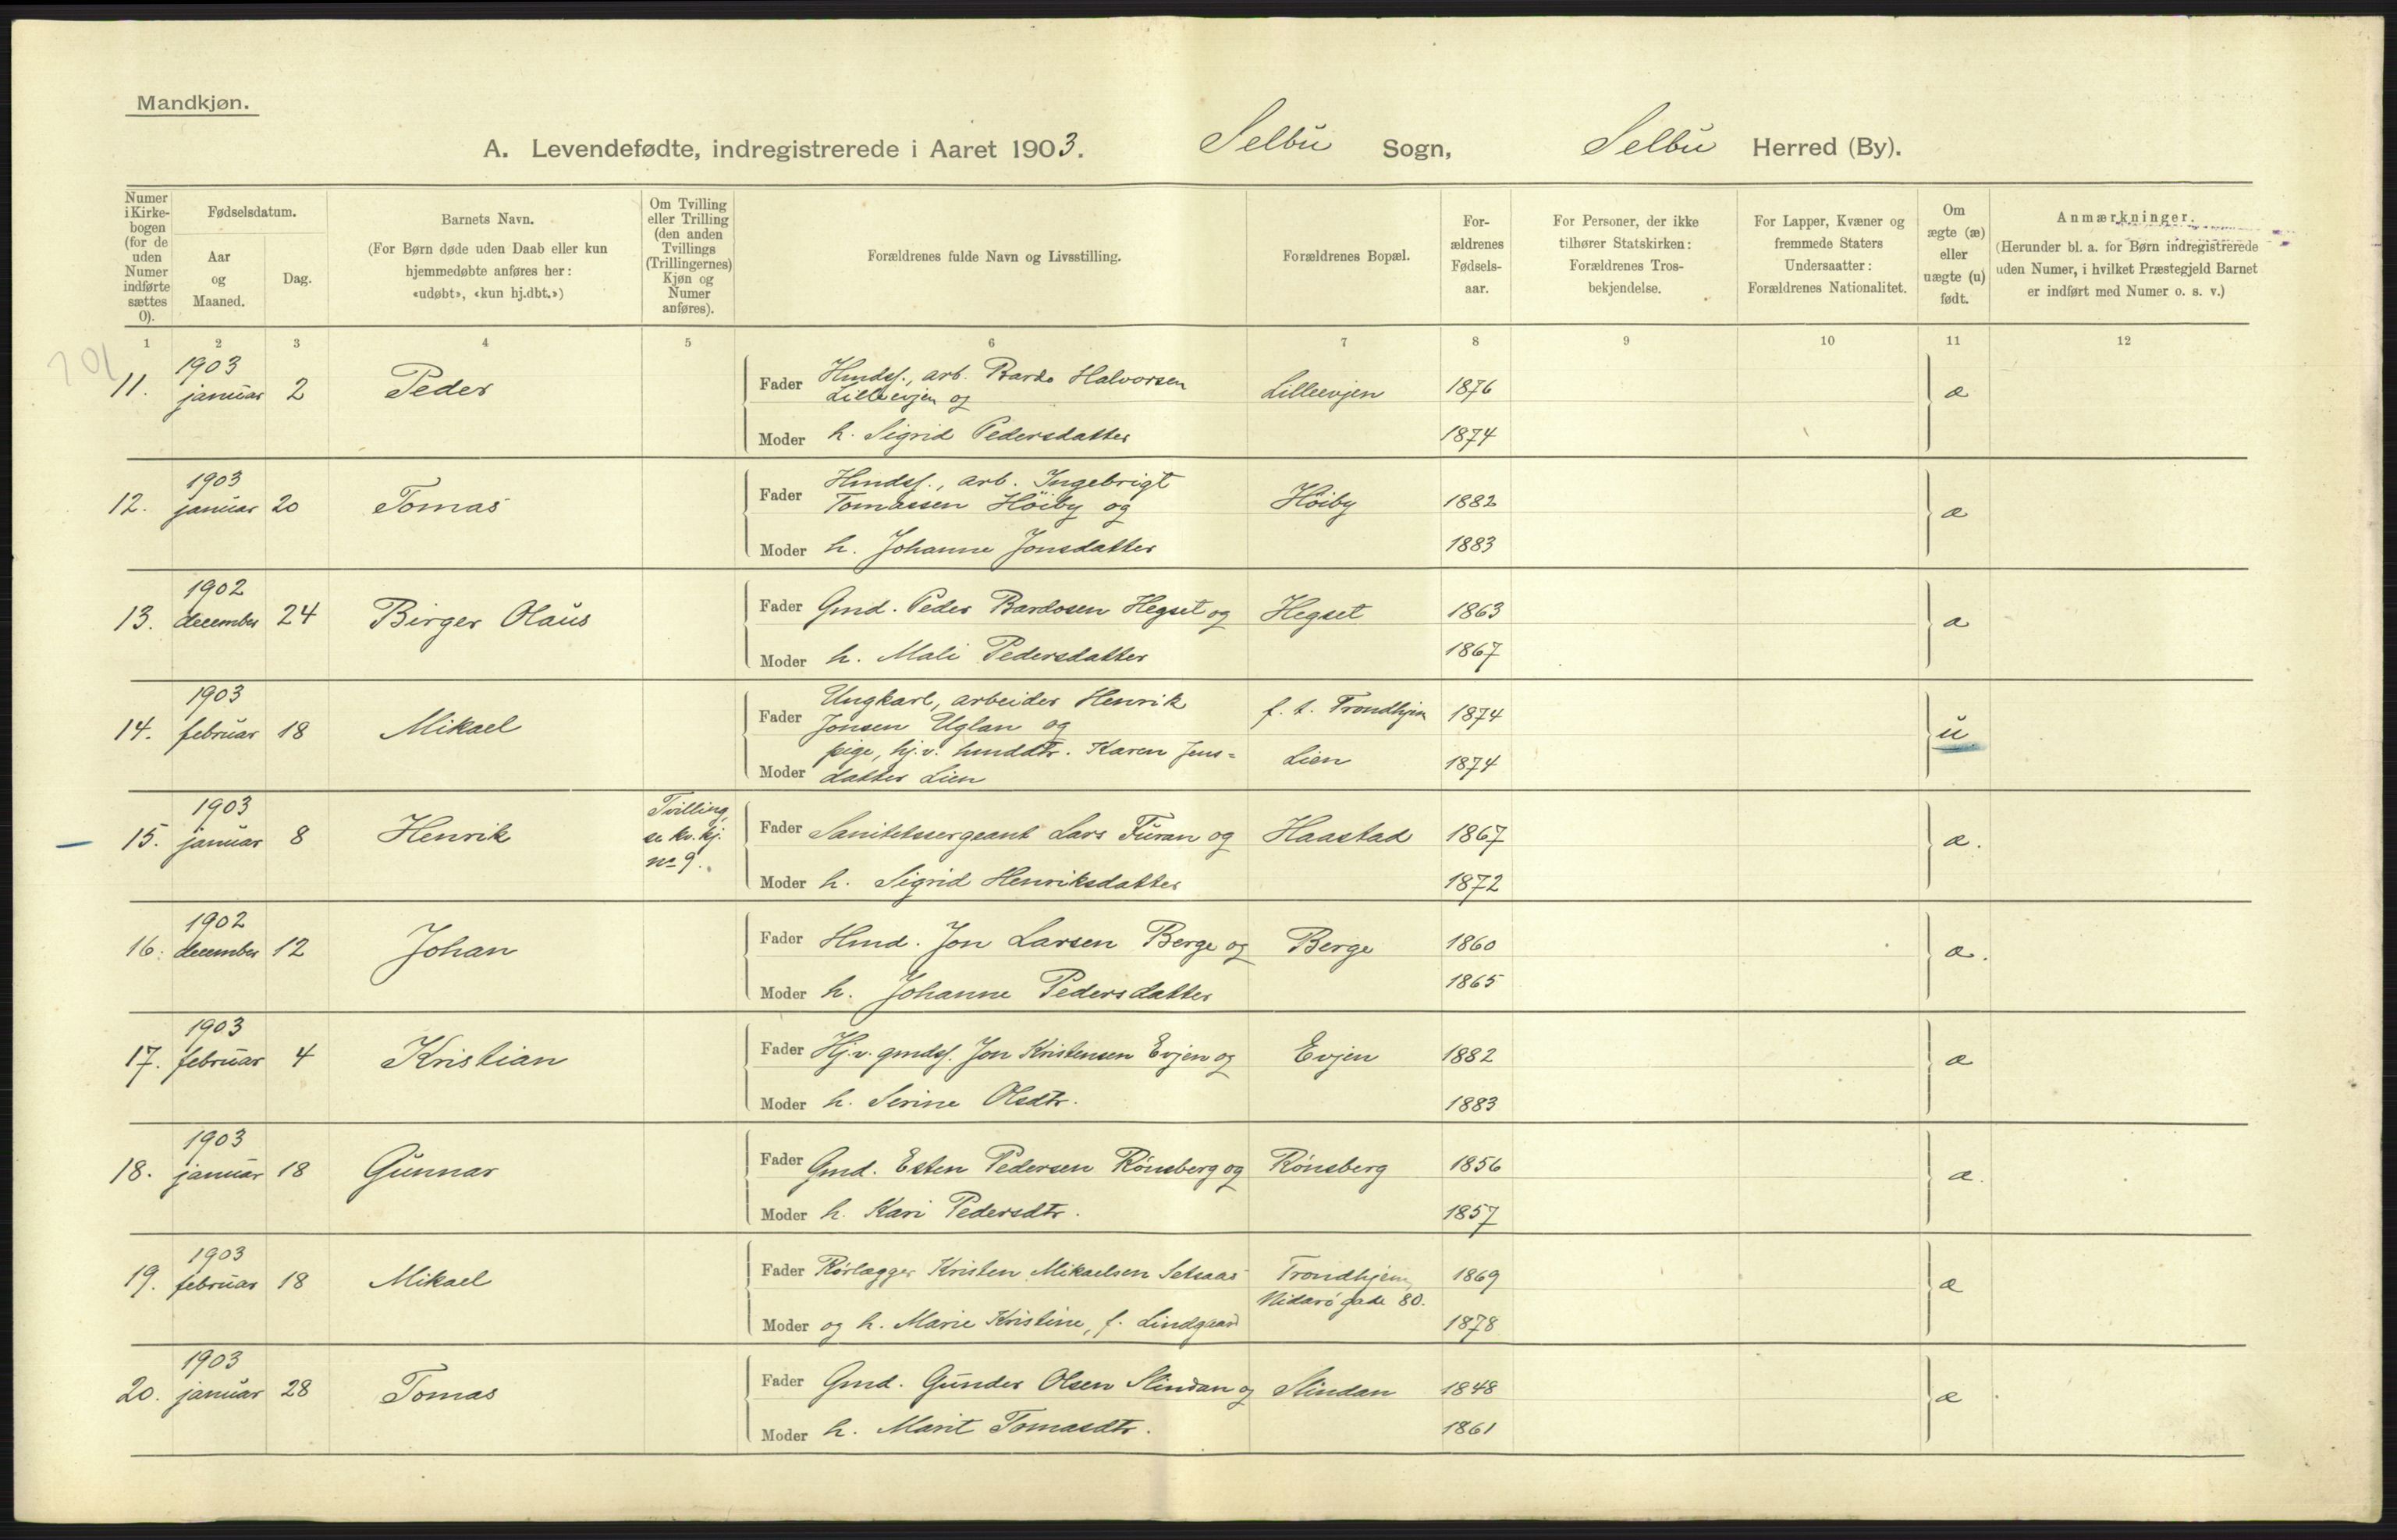 Mandkjøn.
A. Levendefødte, indregistrerede i Aaret 1903. Selbu Sogn, Selbu Herred (By).
Numer i Kirke-bogen (for de uden Numer indførte sættes 0).
Fødselsdatum.
Aar og Maaned.
Dag.
Barnets Navn.
(For Børn døde uden Daab eller kun hjemmedøbte anføres her: «udøbt», «kun hj.dbt.»)
Om Tvilling eller Trilling (den anden Tvillings (Trillingernes) Kjøn og Numer anføres).
Forældrenes fulde Navn og Livsstilling.
Forældrenes Bopæl.
For-ældrenes Fødsels-aar.
For Personer, der ikke tilhører Statskirken: Forældrenes Tros-bekjendelse.
For Lapper, Kvæner og fremmede Staters Undersaatter: Forældrenes Nationalitet.
Om ægte (æ) eller uægte (u) født.
Anmærkninger.
(Herunder bl. a. for Børn indregistrerede uden Numer, i hvilket Præstegjeld Barnet er indført med Numer o. s. v.)
1 2 3 4 5 6 7 8 9 10 11 12
1903
11. januar 2 Peder Fader Hmdss., arb. Bardo Halvorsen Lilleevjen og Lilleevjen 1876 æ
Moder h. Sigrid Pedersdatter 1874
1903
12. januar 20 Tomas Fader Hmdss., arb. Ingebrigt Tomassen Höiby og Höiby 1882 æ
Moder h. Johanne Jonsdatter 1883
1902
13. december 24 Birger Olaus Fader Gmd. Peder Bardosen Hegset og Hegset 1863 æ
Moder h. Mali Pedersdatter 1867
1903
14. februar 18 Mikael Fader Ungkarl, arbeider Henrik Jonsen Uglan og f. t. Trondhjem 1874 u
Moder pige, hj.v. hmddtr. Karen Jens=datter Lien Lien 1874
1903
15. januar 8 Henrik Tvilling, se kv.kj. no 9. Fader Sanitetssergeant Lars Furan og Haastad 1867 æ.
Moder h. Sigrid Henriksdatter 1872
1902
16. december 12 Johan Fader Hmd. Jon Larsen Berge og Berge 1860 æ.
Moder h. Johanne Pedersdatter 1865
1903
17. februar 4 Kristian Fader Hj.v. gmdss. Jon Kristensen Evjen og Evjen 1882 æ
Moder h. Serine Olsdtr. 1883
1903
18. januar 18 Gunnar Fader Gmd. Esten Pedersen Rönsberg og Rönsberg 1856 æ.
Moder h. Kari Pedersdtr. 1857
1903
19. februar 18 Mikael Fader Rørlægger Kristen Mikaelsen Setsaas Trondhjem, Nidarö gade 80. 1869 æ
Moder og h. Marie Kristine, f. Lindgaard 1878
1903
20. januar 28 Tomas Fader Gmd. Gunder Olsen Slindan og Slindan 1848 æ
Moder h. Marit Tomasdtr. 1861